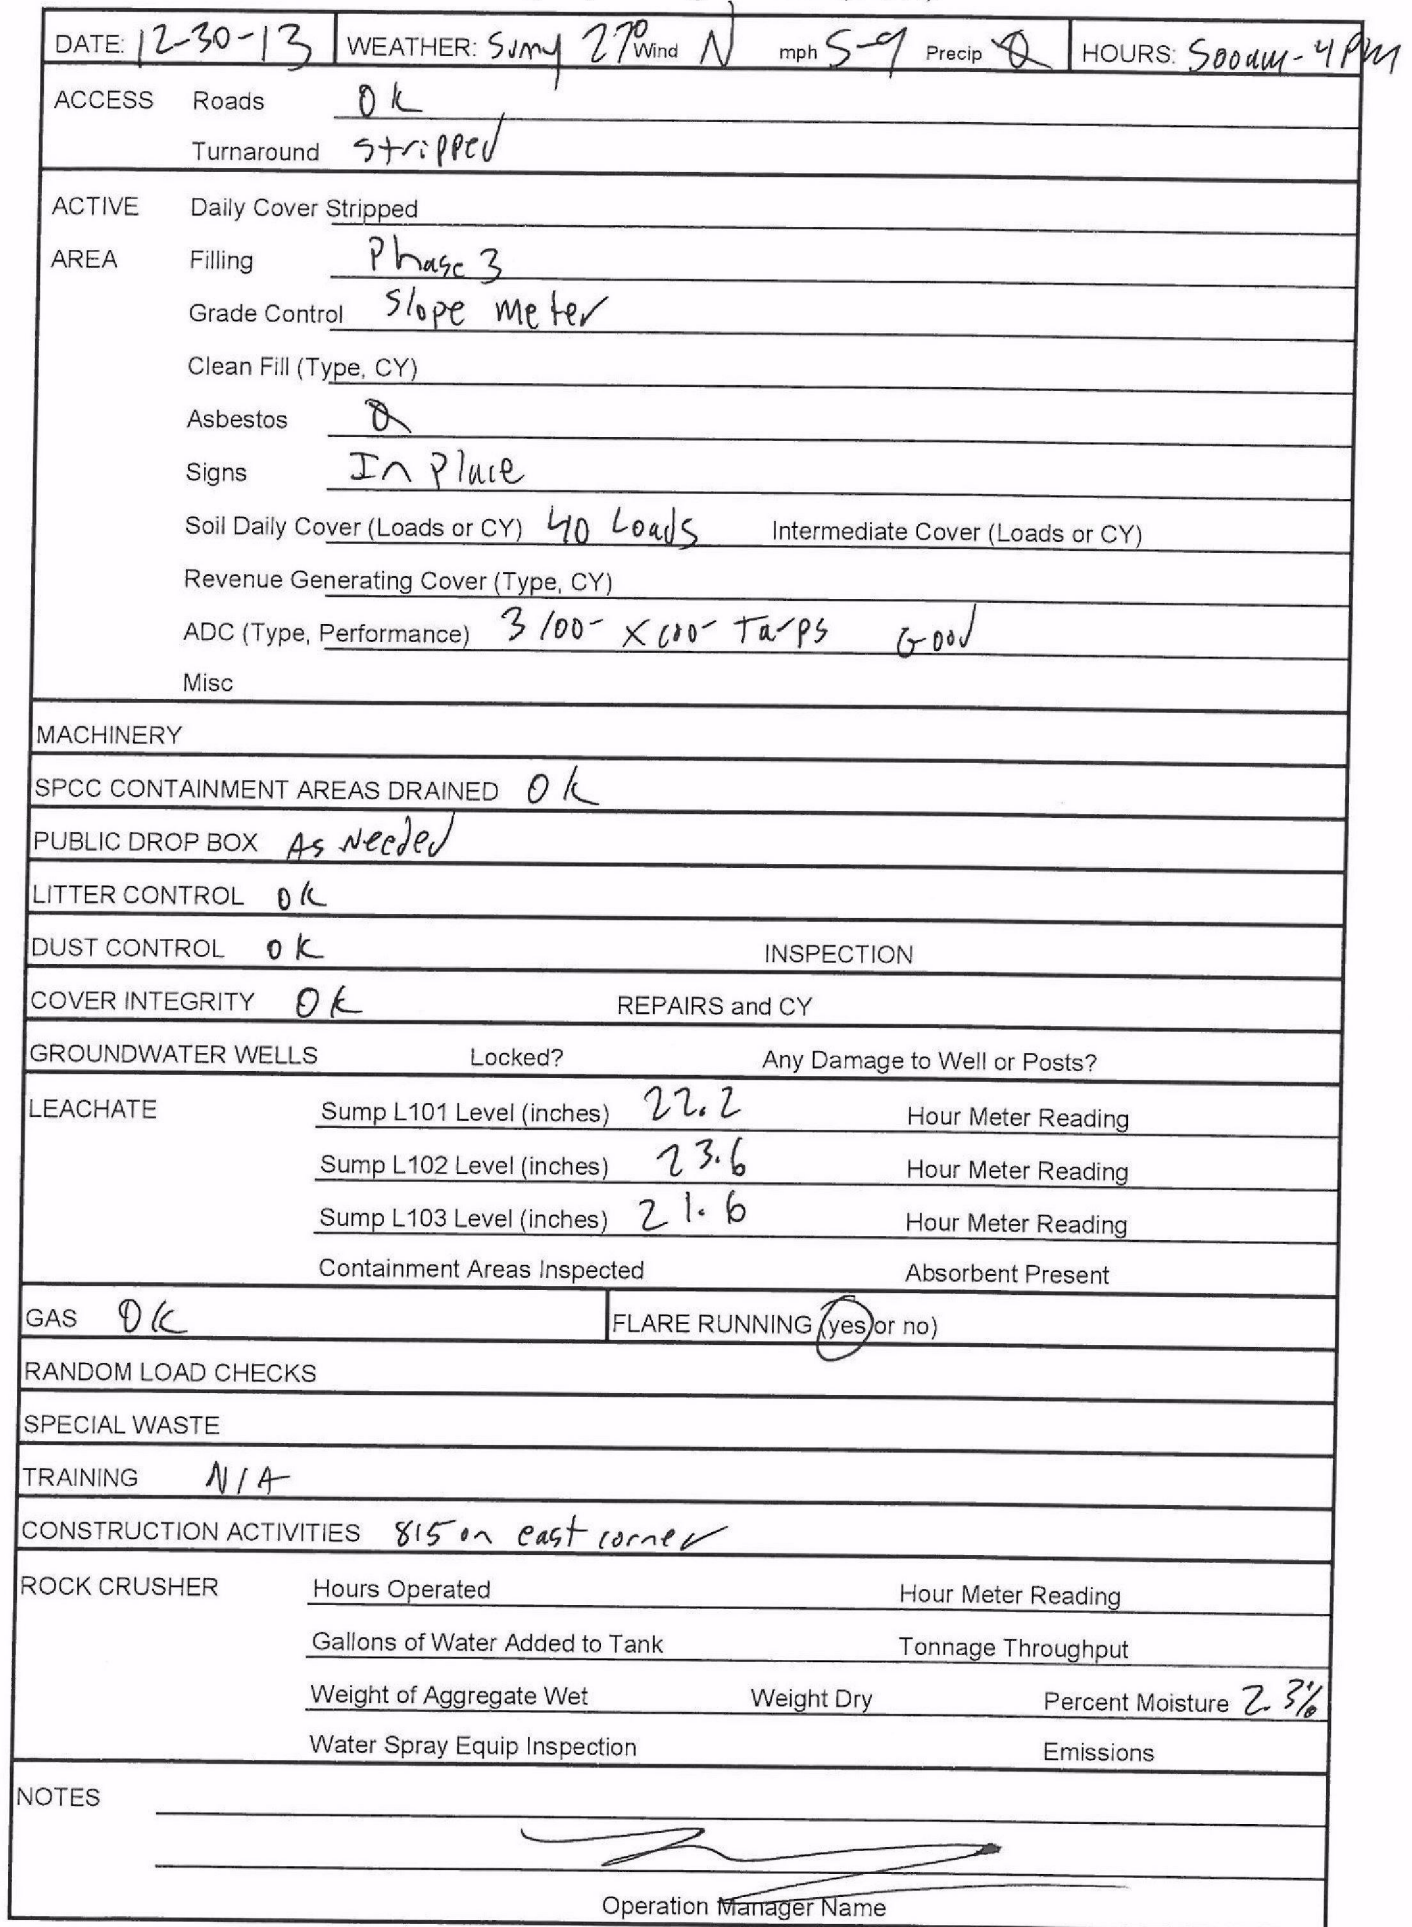 DATE: 12-30-13 WEATHER: Sunny 27° Wind N mph 5-9 Precip 0 HOURS: 500am-4PM
ACCESS Roads OK
Turnaround stripped
ACTIVE Daily Cover Stripped
AREA Filling Phase 3
Grade Control Slope meter
Clean Fill (Type, CY)
Asbestos 0
Signs In Place
Soil Daily Cover (Loads or CY) 40 Loads Intermediate Cover (Loads or CY)
Revenue Generating Cover (Type, CY)
ADC (Type, Performance) 3 100- X 100- Tarps Good
Misc
MACHINERY
SPCC CONTAINMENT AREAS DRAINED OK
PUBLIC DROP BOX As Needed
LITTER CONTROL OK
DUST CONTROL OK INSPECTION
COVER INTEGRITY OK REPAIRS and CY
GROUNDWATER WELLS Locked? Any Damage to Well or Posts?
LEACHATE Sump L101 Level (inches) 22.2 Hour Meter Reading
Sump L102 Level (inches) 23.6 Hour Meter Reading
Sump L103 Level (inches) 21.6 Hour Meter Reading
Containment Areas Inspected Absorbent Present
GAS OK FLARE RUNNING (yes or no)
RANDOM LOAD CHECKS
SPECIAL WASTE
TRAINING N/A
CONSTRUCTION ACTIVITIES 815 on east corner
ROCK CRUSHER Hours Operated Hour Meter Reading
Gallons of Water Added to Tank Tonnage Throughput
Weight of Aggregate Wet Weight Dry Percent Moisture 2.3%
Water Spray Equip Inspection Emissions
NOTES
Operation Manager Name